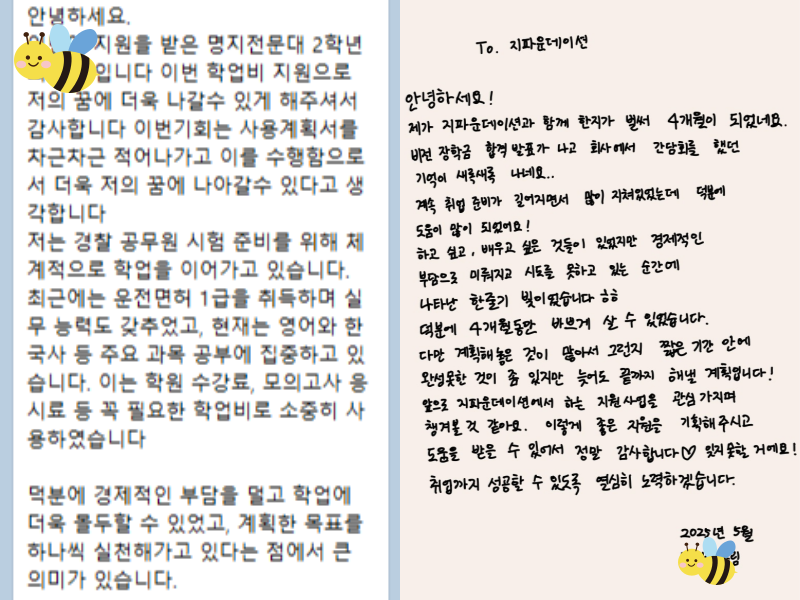 안녕하세요.
지원을 받은 명지전문대 2학년
입니다 이번 학업비 지원으로
저의 꿈에 더욱 나갈수 있게 해주셔서
감사합니다 이번기회는 사용계획서를
차근차근 적어나가고 이를 수행함으로
서 더욱 저의 꿈에 나아갈수 있다고 생
각합니다
저는 경찰 공무원 시험 준비를 위해 체
계적으로 학업을 이어가고 있습니다.
최근에는 운전면허 1급을 취득하며 실
무 능력도 갖추었고, 현재는 영어와 한
국사 등 주요 과목 공부에 집중하고 있
습니다. 이는 학원 수강료, 모의고사 응
시료 등 꼭 필요한 학업비로 소중히 사
용하였습니다
덕분에 경제적인 부담을 덜고 학업에
더욱 몰두할 수 있었고, 계획한 목표를
하나씩 실천해가고 있다는 점에서 큰
의미가 있습니다.
To. 지파운데이션
안녕하세요!
제가 지파운데이션과 함께 한지가 벌써 4개월이 되었네요.
비전 장학금 합격 발표가 나고 회사에서 간담회를 했던
기억이 새록새록 나네요..
계속 취업 준비가 길어지면서 많이 지쳐있었는데 덕분에
도움이 많이 되었어요!
하고 싶고, 배우고 싶은 것들이 있었지만 경제적인
부담으로 미뤄지고 시도를 못하고 있는 순간에
나타난 한줄기 빛이었습니다 ㅎㅎ
덕분에 4개월동안 바쁘게 살 수 있었습니다.
다만 계획해놓은 것이 많아서 그런지 짧은 기간 안에
완성못한 것이 좀 있지만 늦어도 끝까지 해낼 계획입니다!
앞으로 지파운데이션에서 하는 지원사업을 관심가지며
챙겨볼 것 같아요. 이렇게 좋은 지원을 기획해주시고
도움을 받을 수 있어서 정말 감사합니다♡ 잊지못할 거에요!
취업까지 성공할 수 있도록 열심히 노력하겠습니다.
2025년 5월